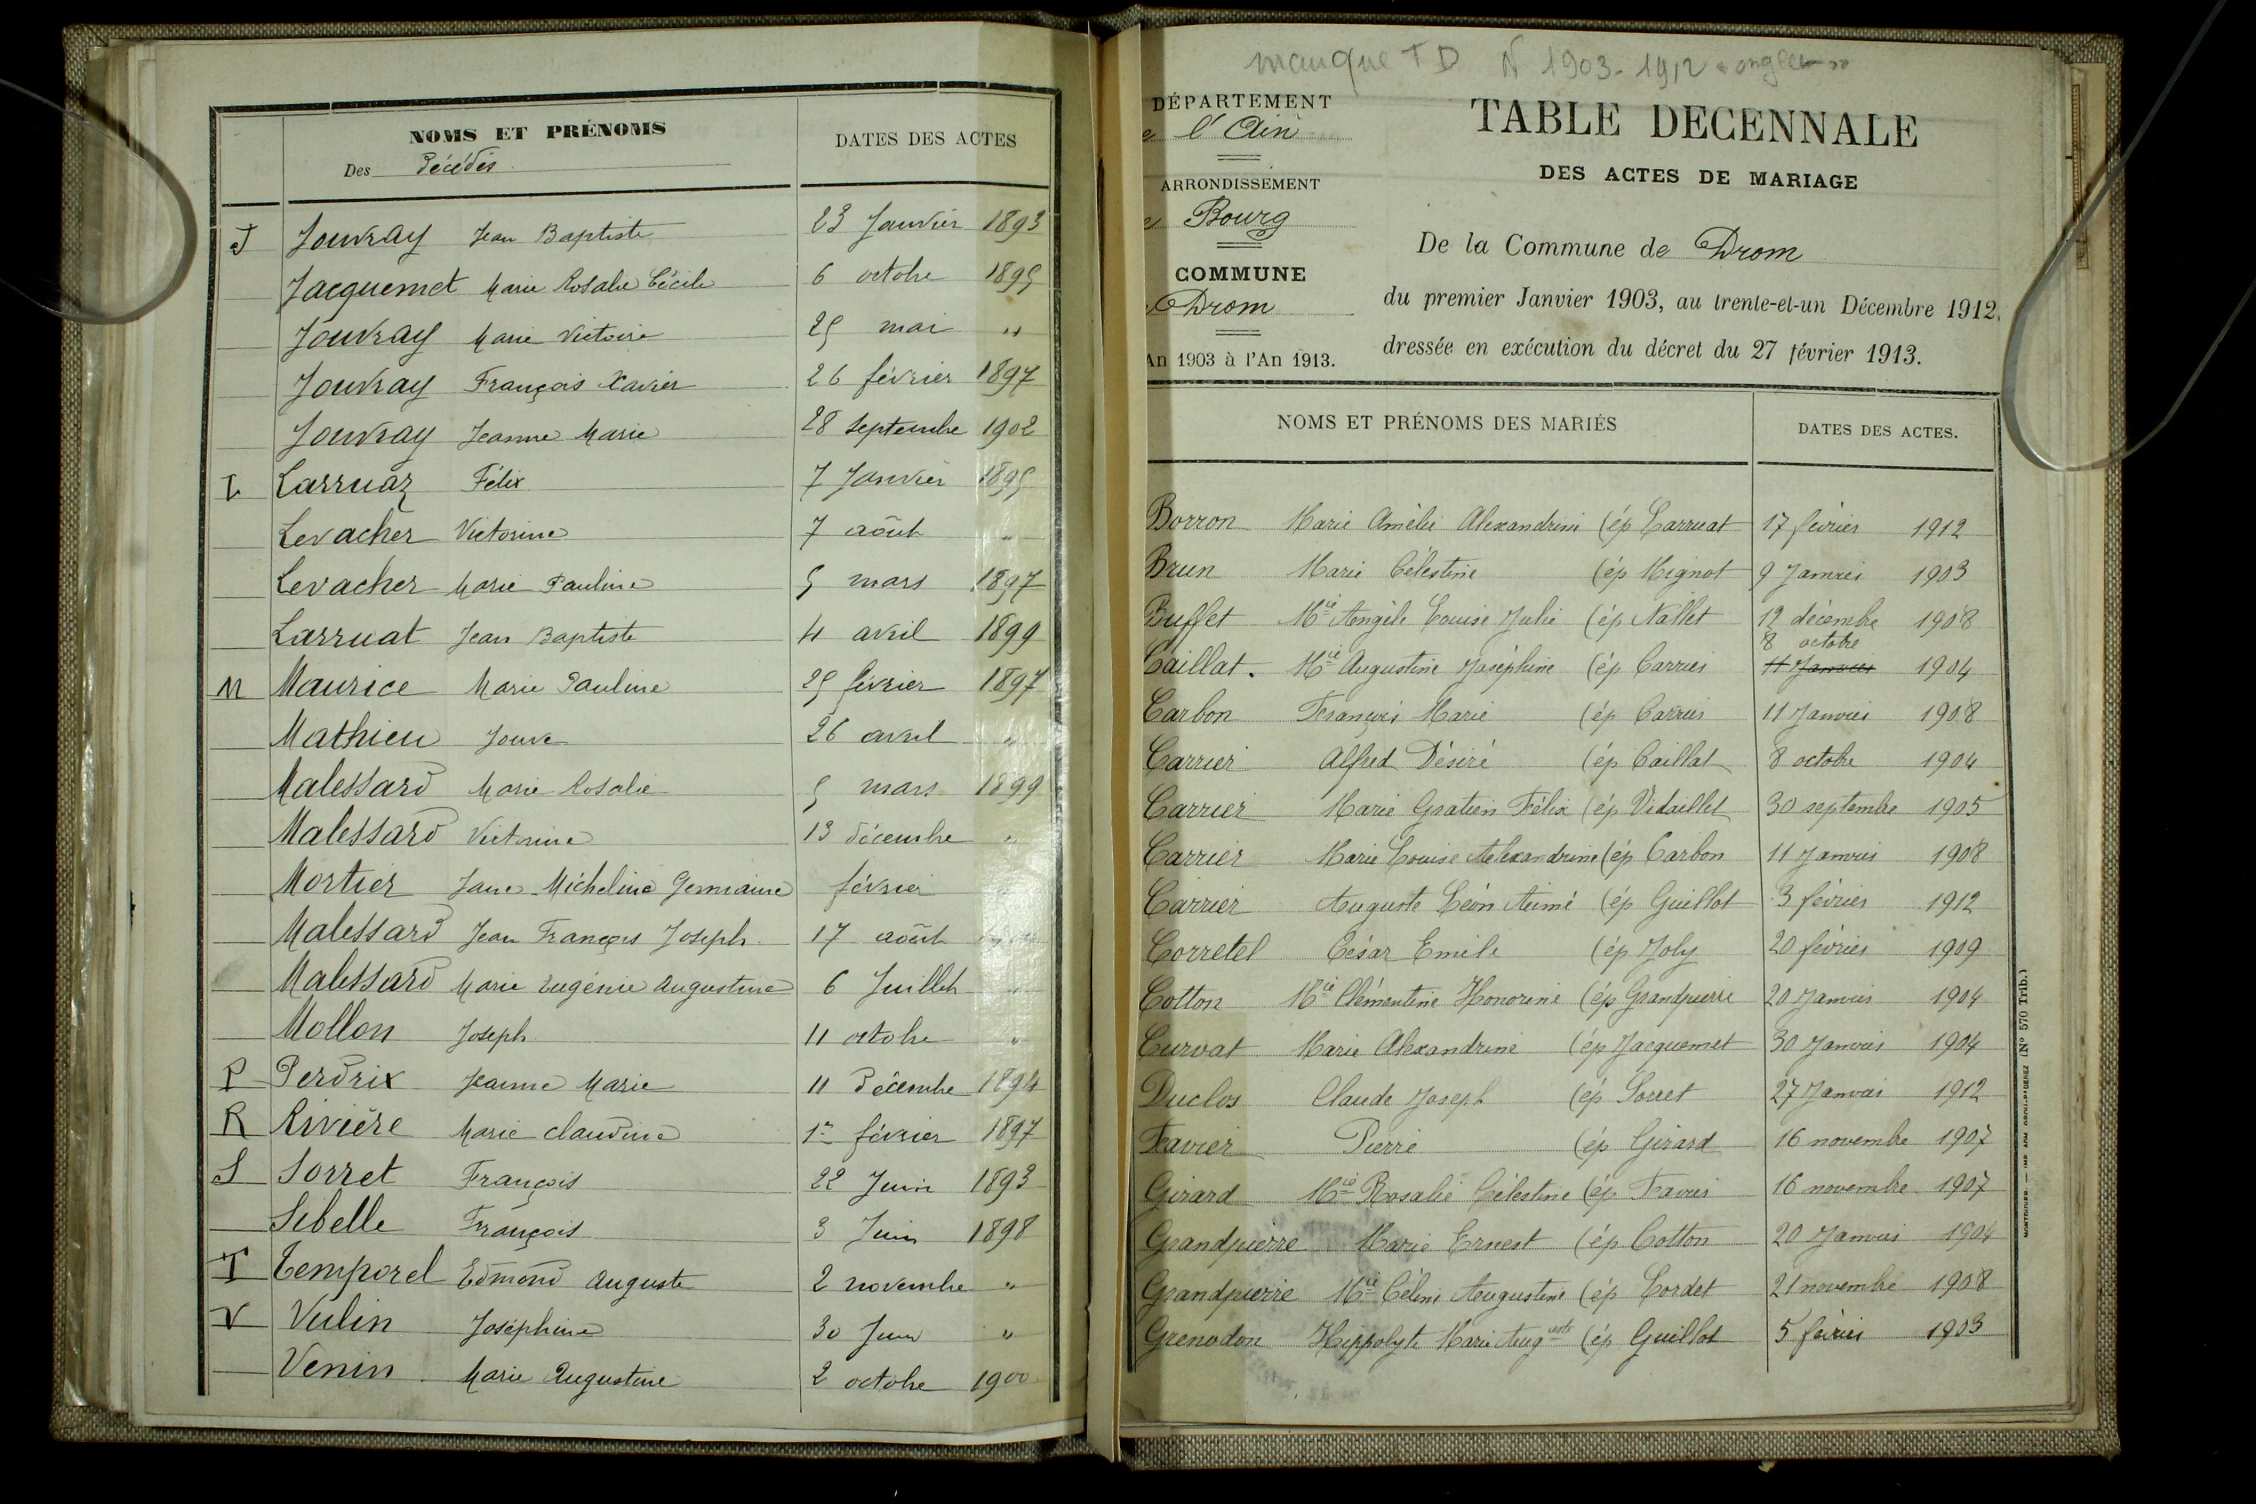 NOMS ET PRÉNOMS
Des Décédés
DATES DES ACTES
J Jouvray Jean Baptiste 23 Janvier 1893
Jacquemet Marie Rosalie Cécile 6 octobre 1895
Jouvray Marie Victoire 25 mai "
Jouvray François Xavier 26 février 1897
Jouvray Jeanne Marie 28 Septembre 1902
L Larruaz Félix 7 Janvier 1895
Levacher Victorine 7 août "
Levacher Marie Pauline 5 mars 1897
Larruat Jean Baptiste 4 avril 1899
M Maurice Marie Pauline 25 février 1897
Mathieu Jouve 26 avril "
Malessard Marie Rosalie 5 mars 1899
Malessard Victorine 13 décembre "
Mortier Jane Micheline Germaine février
Malessard Jean François Joseph 17 août
Malessard Marie Eugénie Augustine 6 Juillet
Mollon Joseph 11 octobre "
P Perdrix Jeanne Marie 11 Décembre 1894
R Rivière Marie Claudine 1er février 1897
S Sorret François 22 Juin 1893
Sibelle François 3 Juin 1898
T Temporel Edmond Auguste 2 novembre "
V Vulin Joséphine 30 Juin "
Venin Marie Augustine 2 octobre 1900
manque TD N 1903-1912
DÉPARTEMENT
e l'Ain
ARRONDISSEMENT
e Bourg
COMMUNE
Drom
An 1903 à l'An 1913.
TABLE DECENNALE
DES ACTES DE MARIAGE
De la Commune de Drom
du premier Janvier 1903, au trente-et-un Décembre 1912,
dressée en exécution du décret du 27 février 1913.
NOMS ET PRÉNOMS DES MARIÉS
DATES DES ACTES.
Borron Marie Amélie Alexandrine (ép Larruat 17 février 1912
Brun Marie Célestine (ép Mignot 9 Janvier 1903
Buffet Mie Angèle Louise Julie (ép Nallet 12 décembre 1908
8 octobre
Caillat. Mie Augustine Joséphine (ép Carrier 11 Janvier 1904
Carbon François Marie (ép Carrier 11 Janvier 1908
Carrier Alfred Désiré (ép Caillat 8 octobre 1904
Carrier Marie Gratien Félix (ép Vidaillet 30 septembre 1905
Carrier Marie Louise Alexandrine (ép Carbon 11 Janvier 1908
Carrier Auguste Léon Aimé (ép Guillot 3 février 1912
Corretel César Emile (ép Joly 20 février 1909
Cotton Mie Clémentine Honorine (ép Grandpierre 20 Janvier 1904
Curvat Marie Alexandrine (ép Jacquemet 30 Janvier 1904
Duclos Claude Joseph (ép Sorret 27 Janvier 1912
Favier Pierre (ép Girard 16 novembre 1907
Girard Mie Rosalie Célestine (ép Favier 16 novembre 1907
Grandpierre Marie Ernest (ép Cotton 20 Janvier 1904
Grandpierre Mie Céline Augustine (ép Cordet 21 novembre 1908
Grenodon Hippolyte Marie Auguste (ép Guillot 5 février 1903
(N° 570 Trib.)